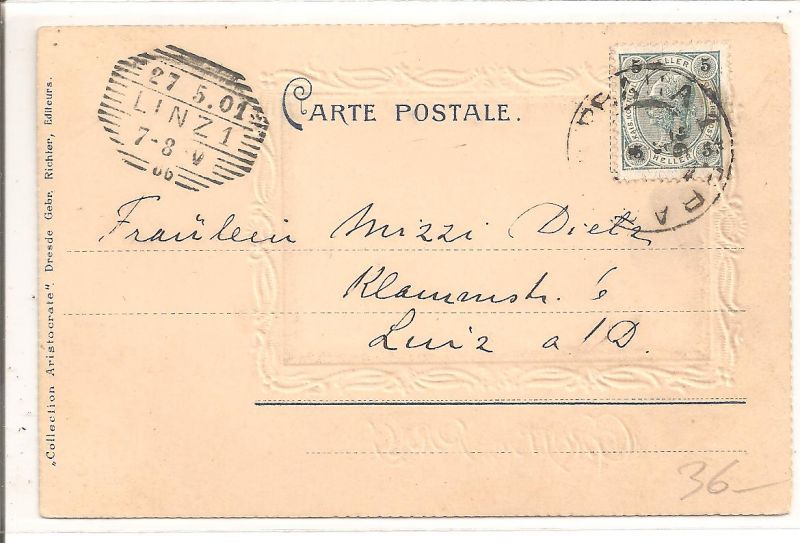 27 5.01
LINZ 1
7-8 V
CARTE POSTALE.
5 HELLER 5
5 HELLER 5
Fräulein Mizzi Dietz
Klammstr. 6
Linz a/D.
„Collection Aristocrate“. Dresde Gebr. Richter, Editeurs.
36-